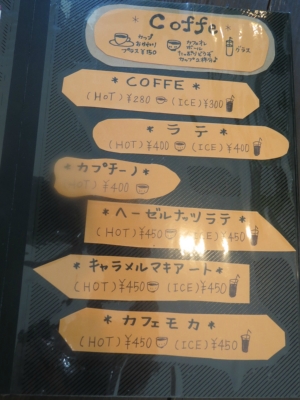 * Coffe *
カップ
おかわり
プラス¥150
カフェオレ
ボール
たっぷりどうぞ
グラス
* COFFE *
(HOT) ¥280 (ICE) ¥300
* ラテ *
(HOT) ¥400 (ICE) ¥400
* カプチーノ *
(HOT) ¥400
* ヘーゼルナッツラテ *
(HOT) ¥450 (ICE) ¥450
* キャラメルマキアート *
(HOT) ¥450 (ICE) ¥450
* カフェモカ *
(HOT) ¥450 (ICE) ¥450